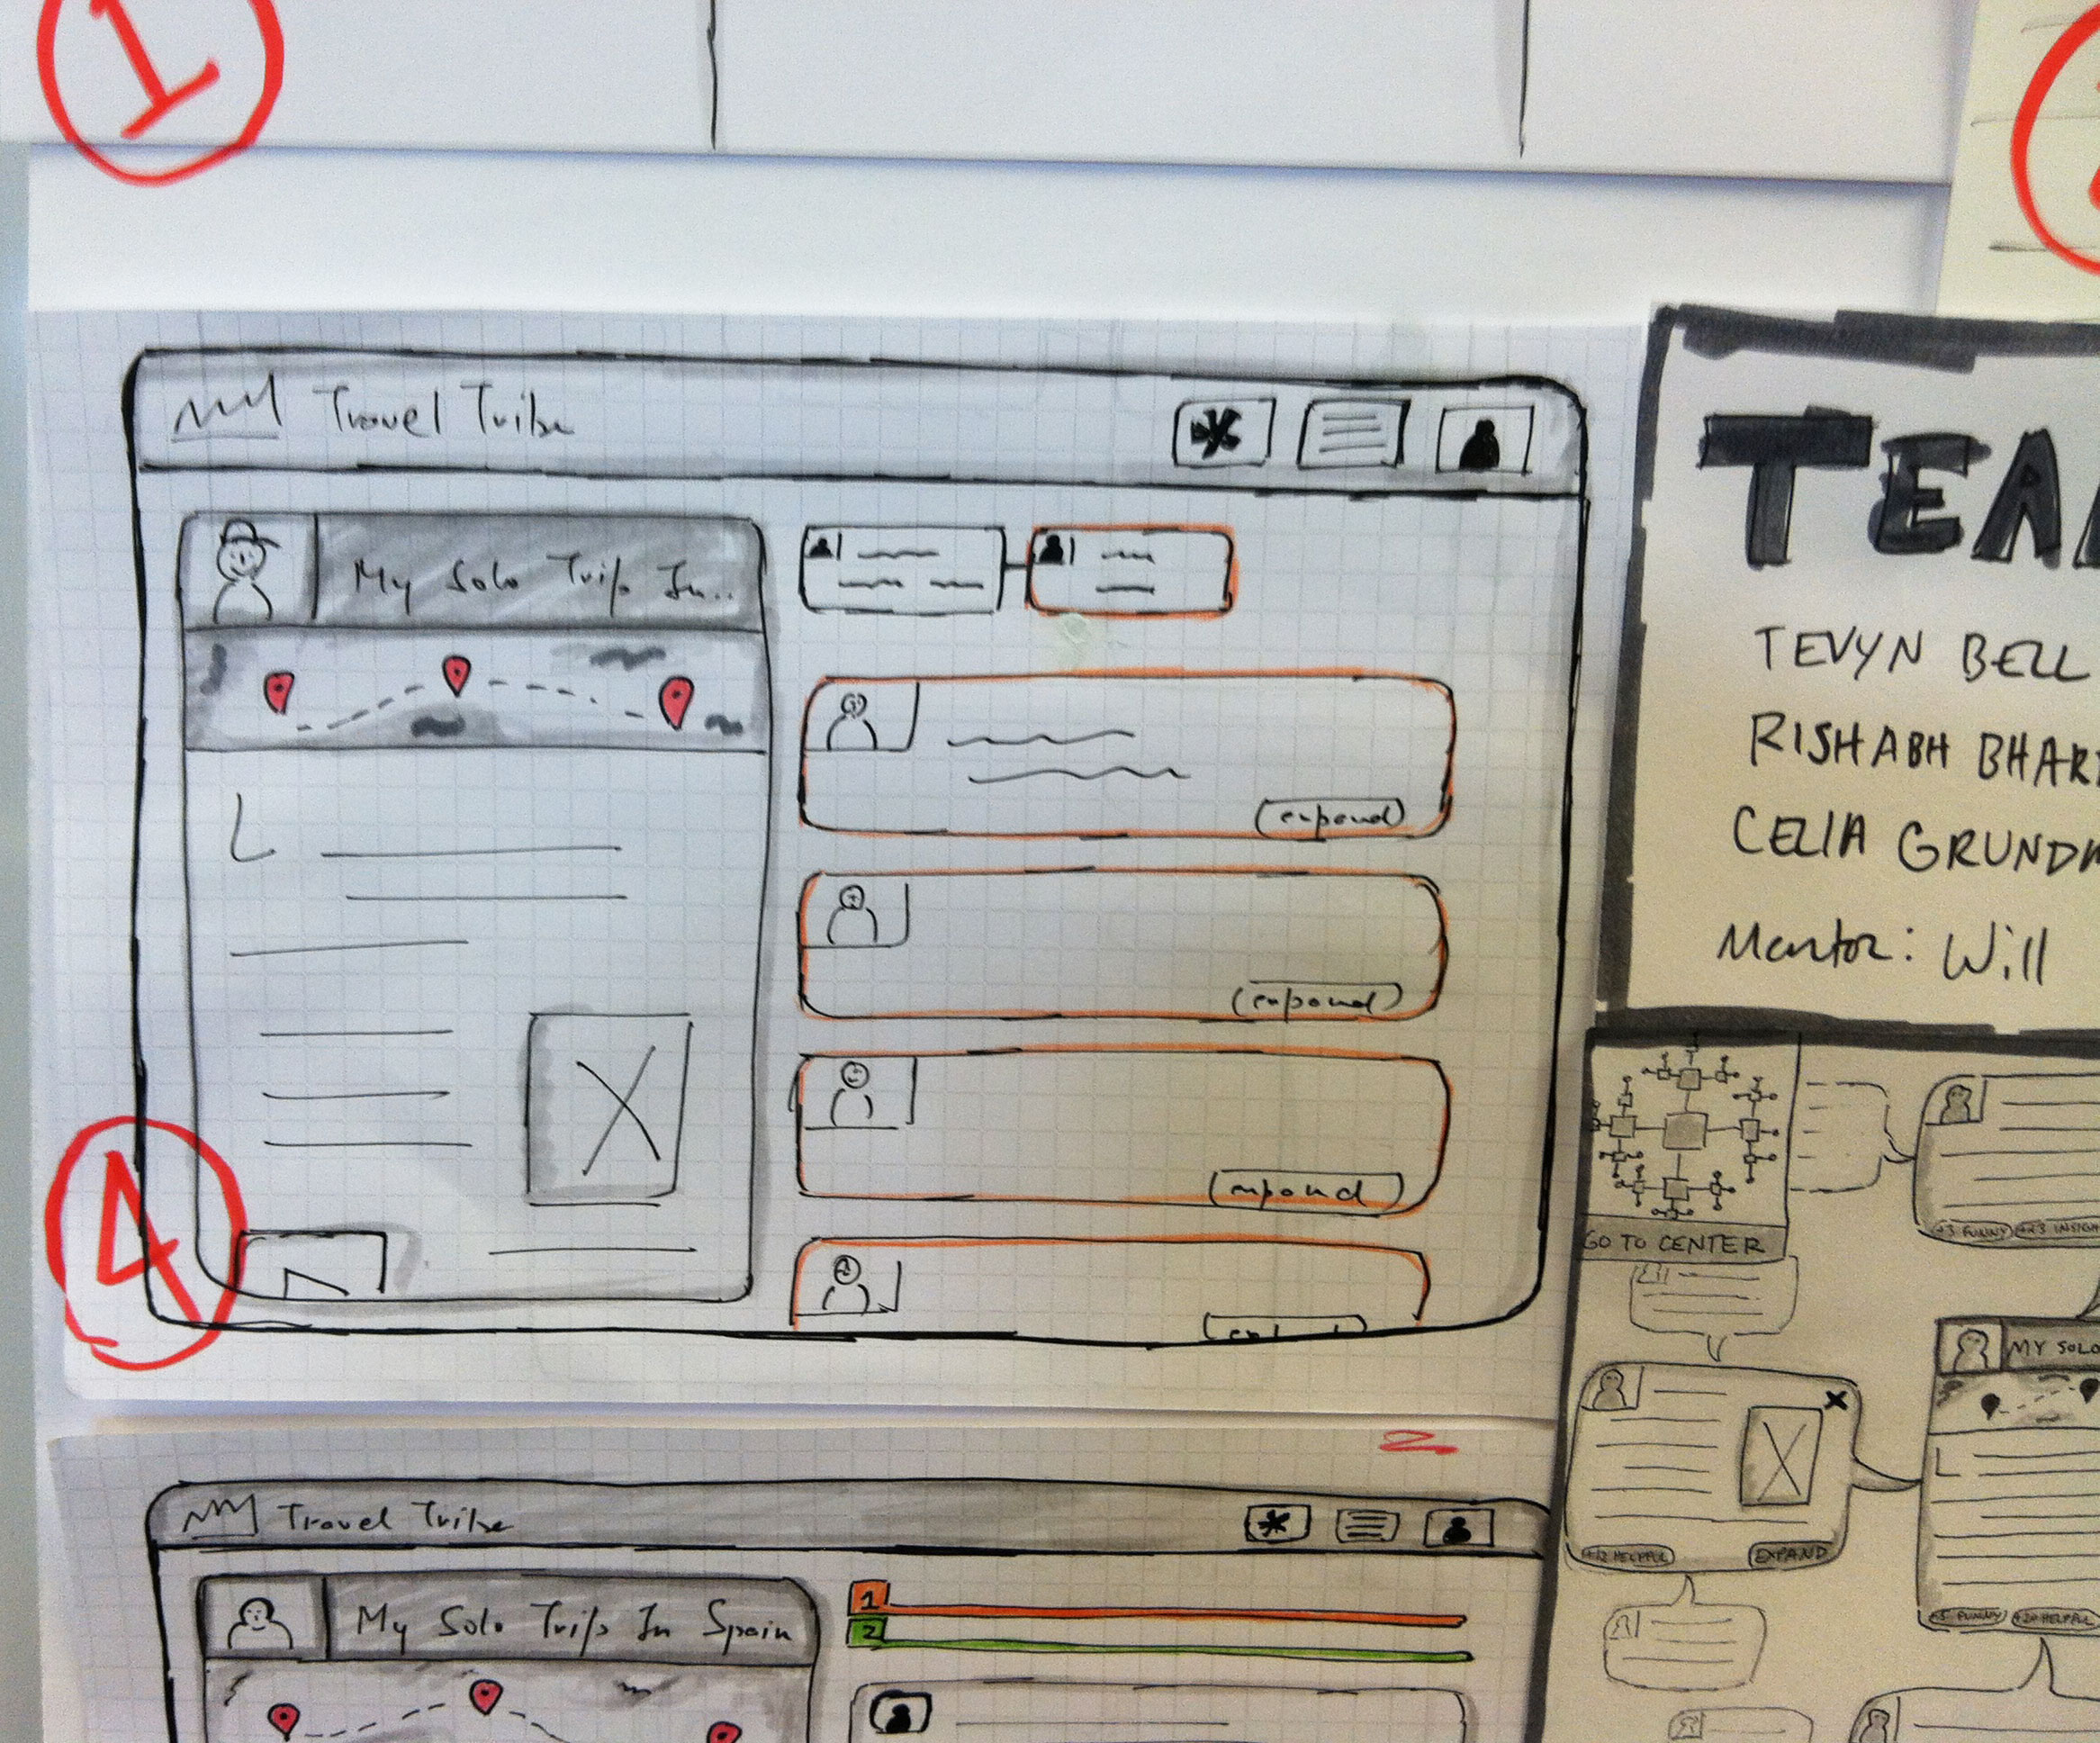 1
Travel Tribe
My Solo Trip In..
expand
expand
expand
4
TEA
TEVYN BELL
RISHABH BHAR
CELIA GRUND
Mentor: Will
GO TO CENTER
+3 FUNNY +23 INSIGH
MY SOLO
+12 HELPFUL
EXPAND
+5 FUNNY +20 HELPFUL
2
Travel Tribe
My Solo Trip In Spain
1
2